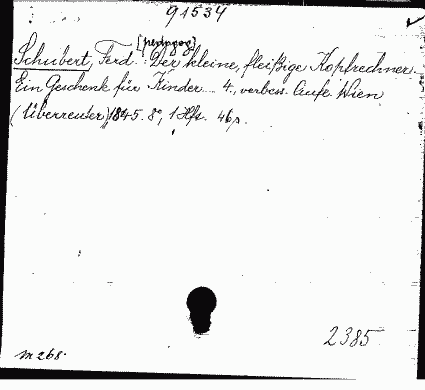 91534
[pedagog]
Schubert, Ferd.: Der kleine, fleißige Kopfrechner.
Ein Geschenk für Kinder. 4., verbess. Aufl. Wien
(Überreuter) 1845. 8°, 1 Hfs. 46 p.
2385
m 268.